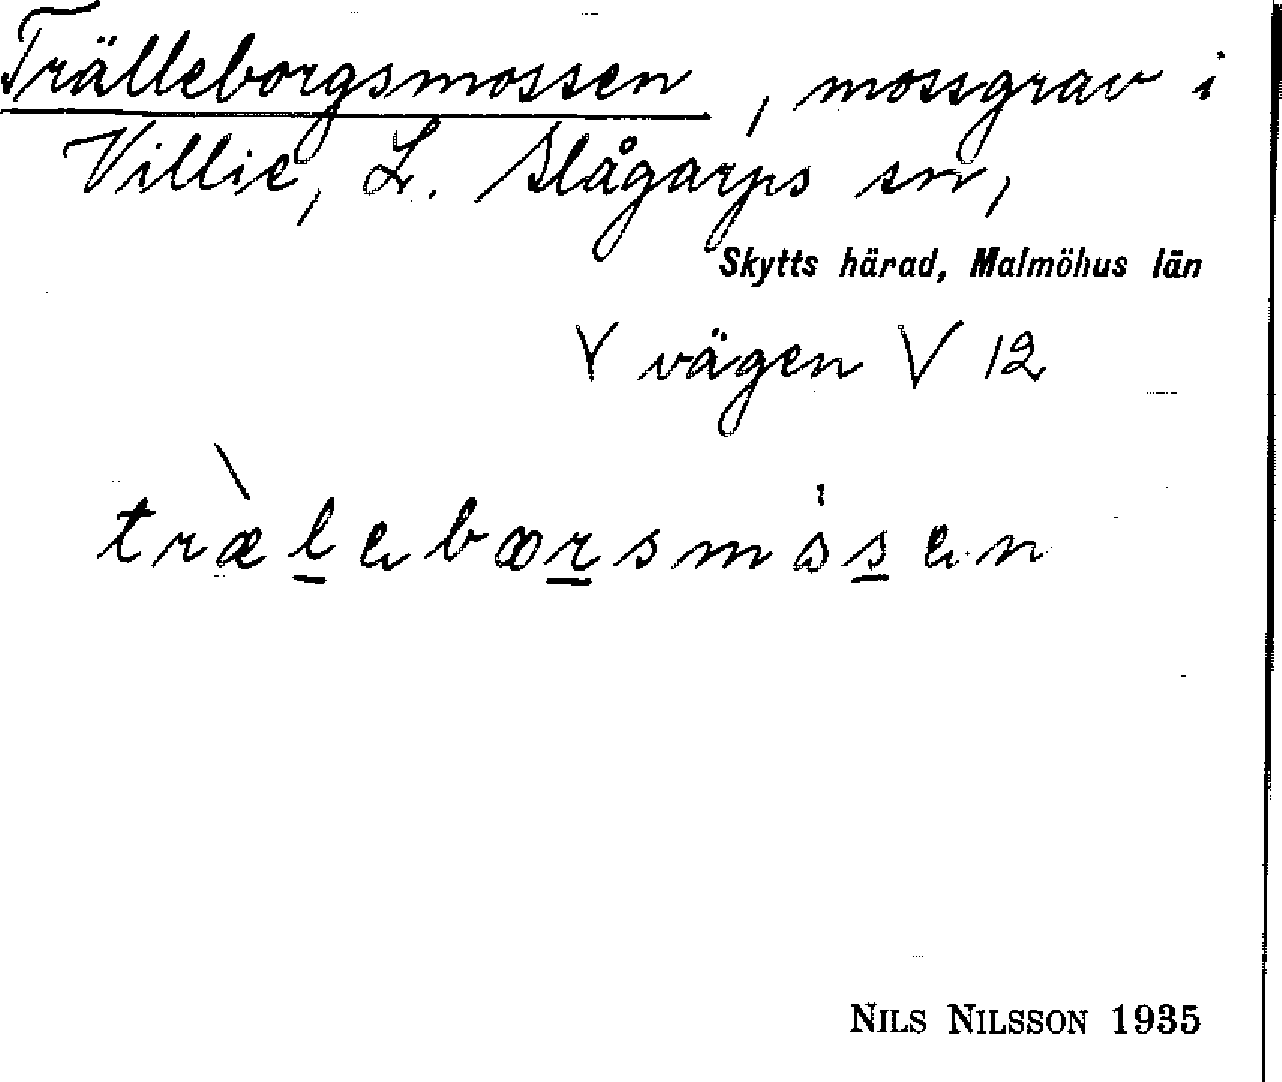 Trälleborgsmossen, mossgrav i
Villie, L. Slågarps sn,
Skytts härad, Malmöhus län
V vägen V 12
træ̀lebɷrsmȧsen
NILS NILSSON 1935